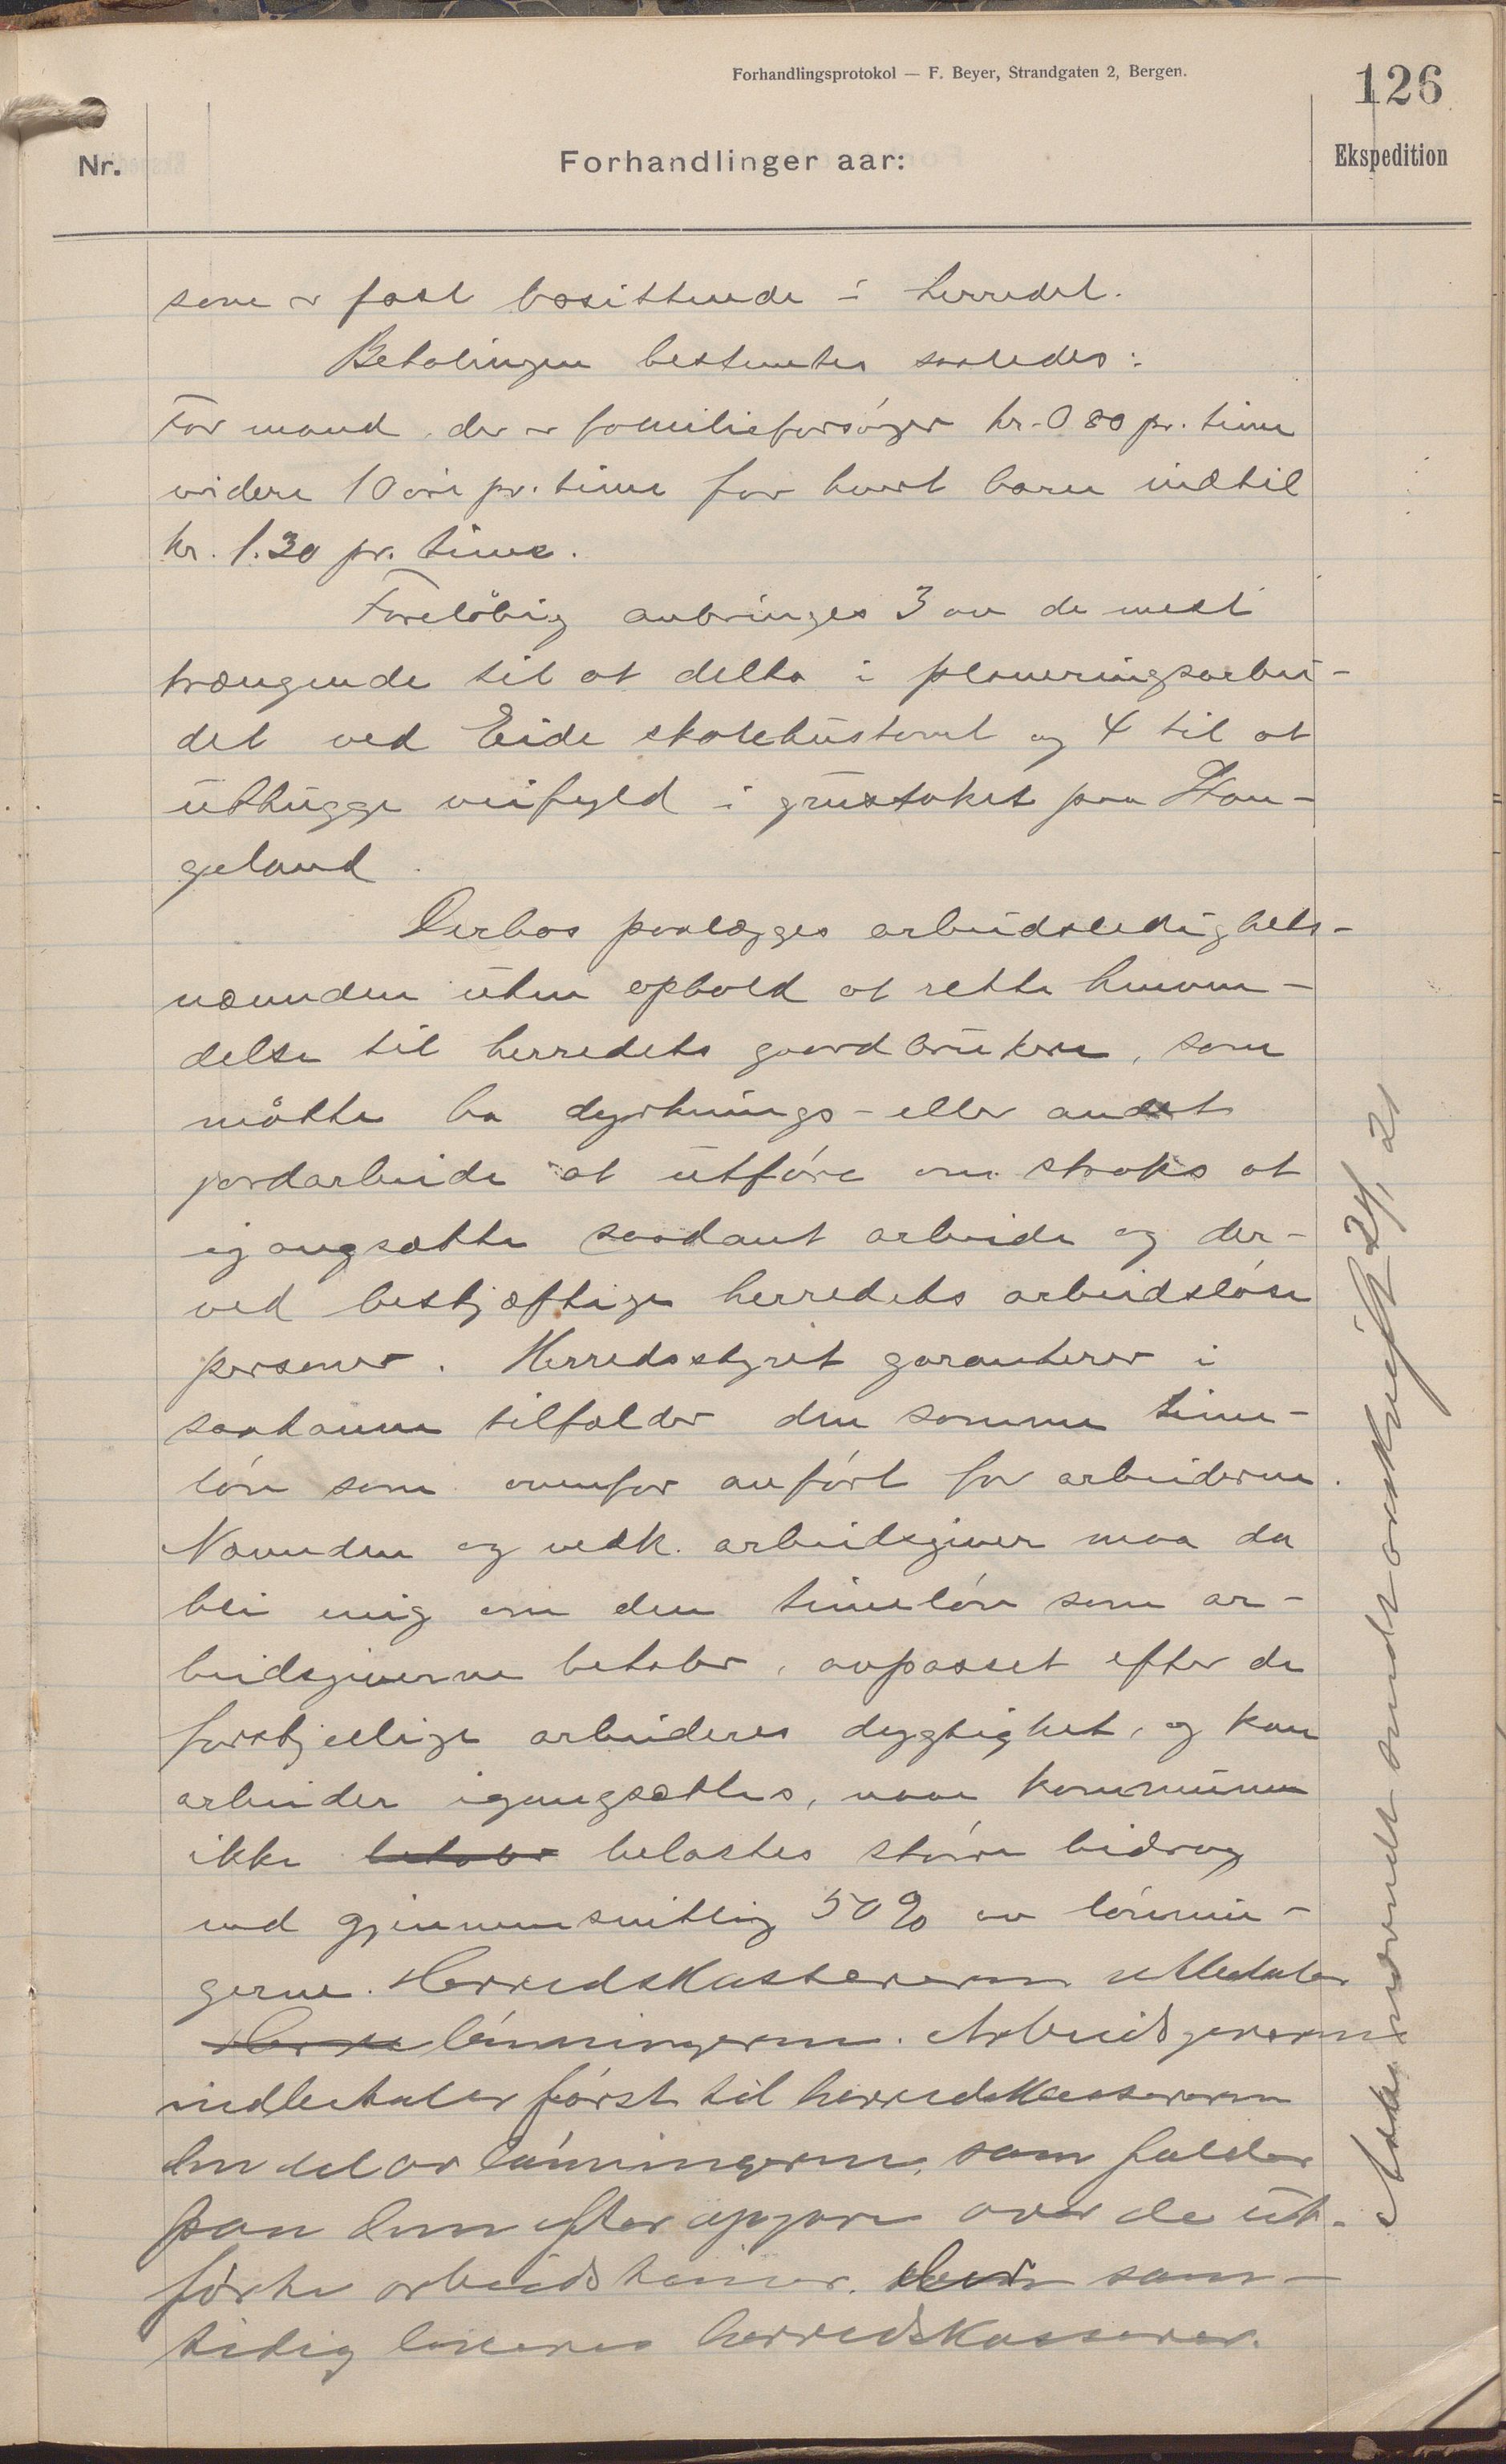 Forhandlingsprotokol — F. Beyer, Strandgaten 2, Bergen.
126
Nr.
Forhandlinger aar:
Ekspedition
som er fast bosittende i herredet.
Betalingen bestemtes saaledes:
For mand, der er familieforsörger kr. 0 80 pr. time
videre 10 öre pr. time for hvert barn indtil
kr. 1.30 pr. time.
Foreløbig anbringes 3 av de mest
trængende til at delta i planeringsarbei-
det ved Eide skolehustomt og 4 til at
uthugge veifyld i grustaket paa Hau-
geland.
Derhos paalægges arbeidsledighets-
nævnden uten ophold at rette henven-
delse til herredets gaardbrukere, som
måtte ha dyrknings- eller andet
jordarbeide at utföre om straks at
igangsætte saadant arbeide og der-
ved beskjæftige herredets arbeidslöse
personer. Herredsstyret garanterer i
saadanne tilfælder den samme time-
lön som ovenfor anfört for arbeiderne.
Nævnden og vedk. arbeidsgiver maa da
bli enig om den timelön som ar-
beidsgiverne betaler, avpasset efter de
forskjellige arbeideres dygtighet, og kan
arbeider igangsættes, naar kommunen
ikke betaler belastes större bidrag
end gjennemsnitlig 50% av lönnin-
gerne. Herredskassereren utbetaler
lönningerne. Arbeidsgiverne
indbetaler först til herredskassereren
den del av lönningerne, som falder
paa dem efter opgave over de ut-
förte arbeidstimer. Den sam-
tidig leveres herredskasserer.
Nævnden sendt avskrift 24/, 21